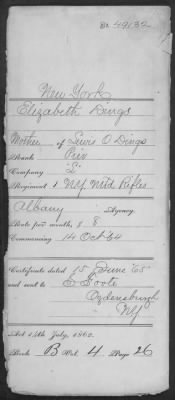 No 49132
New York
Elizabeth Dings
Mother of Lewis O Dings
Rank Priv
Company L
Regiment 1 NY Mtd Rifles
Albany Agency.
Rate per month, $ 8
Commencing 14 Oct 64
Certificate dated 15 June 65
and sent to E Foote
Ogdensburgh
NY
Act 14th July, 1862.
Book B Vol. 4 Page 26